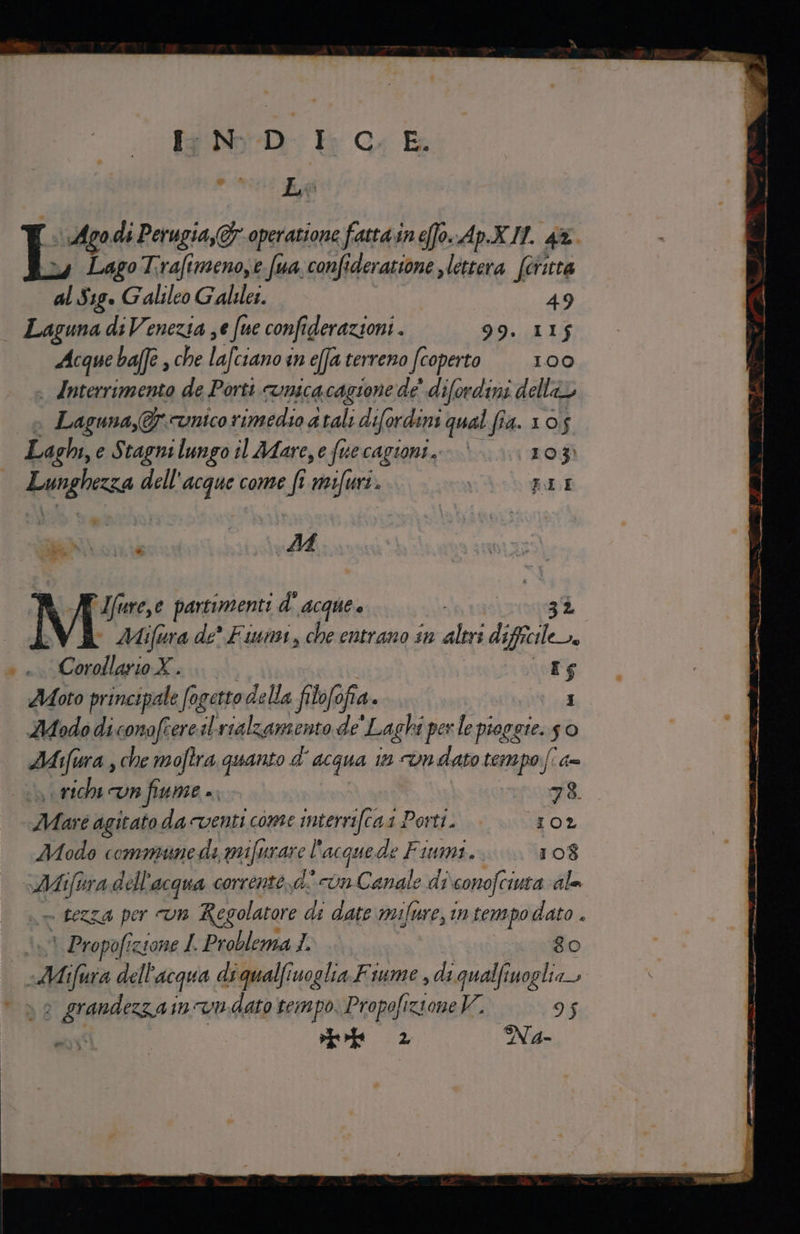 I N D I C E.
L
LAgo di Perugia, & operatione fatta in esso. Ap. XII. 42
Lago Trasimeno, e sua consideratione, lettera scritta
al Sig. Galileo Galilei. 49
Laguna di Venezia, e sue considerazioni. 99. 115
Acque basse, che lasciano in essa terreno scoperto 100
Interrimento de Porti vnica cagione de' disordini della
Laguna, & vnico rimedio à tali disordini qual sia. 105
Laghi, e Stagni lungo il Mare, e sue cagioni. 103
Lunghezza dell'acque come si misuri. 111
M
MIsure, e partimenti d'acque. 32
Misura de' Fiumi, che entrano in altri difficile.
Corollario X. 15
Moto principale sogetto della filosofia. 1
Modo di conoscere il rialzamento de' Laghi per le pioggie. 50
Misura, che mostra quanto d'acqua in vn dato tempo sca-
richi vn fiume. 78
Mare agitato da venti come interrisca i Porti. 102
Modo commune di misurare l'acque de Fiumi. 108
Misura dell'acqua corrente d'vn Canale di conosciuta al-
tezza per vn Regolatore di date misure, in tempo dato.
Propositione I. Problema I. 80
Misura dell'acqua di qualsiuoglia Fiume, di qualsiuoglia
grandezza in vn dato tempo. Propositione V. 95
** 2 Na-